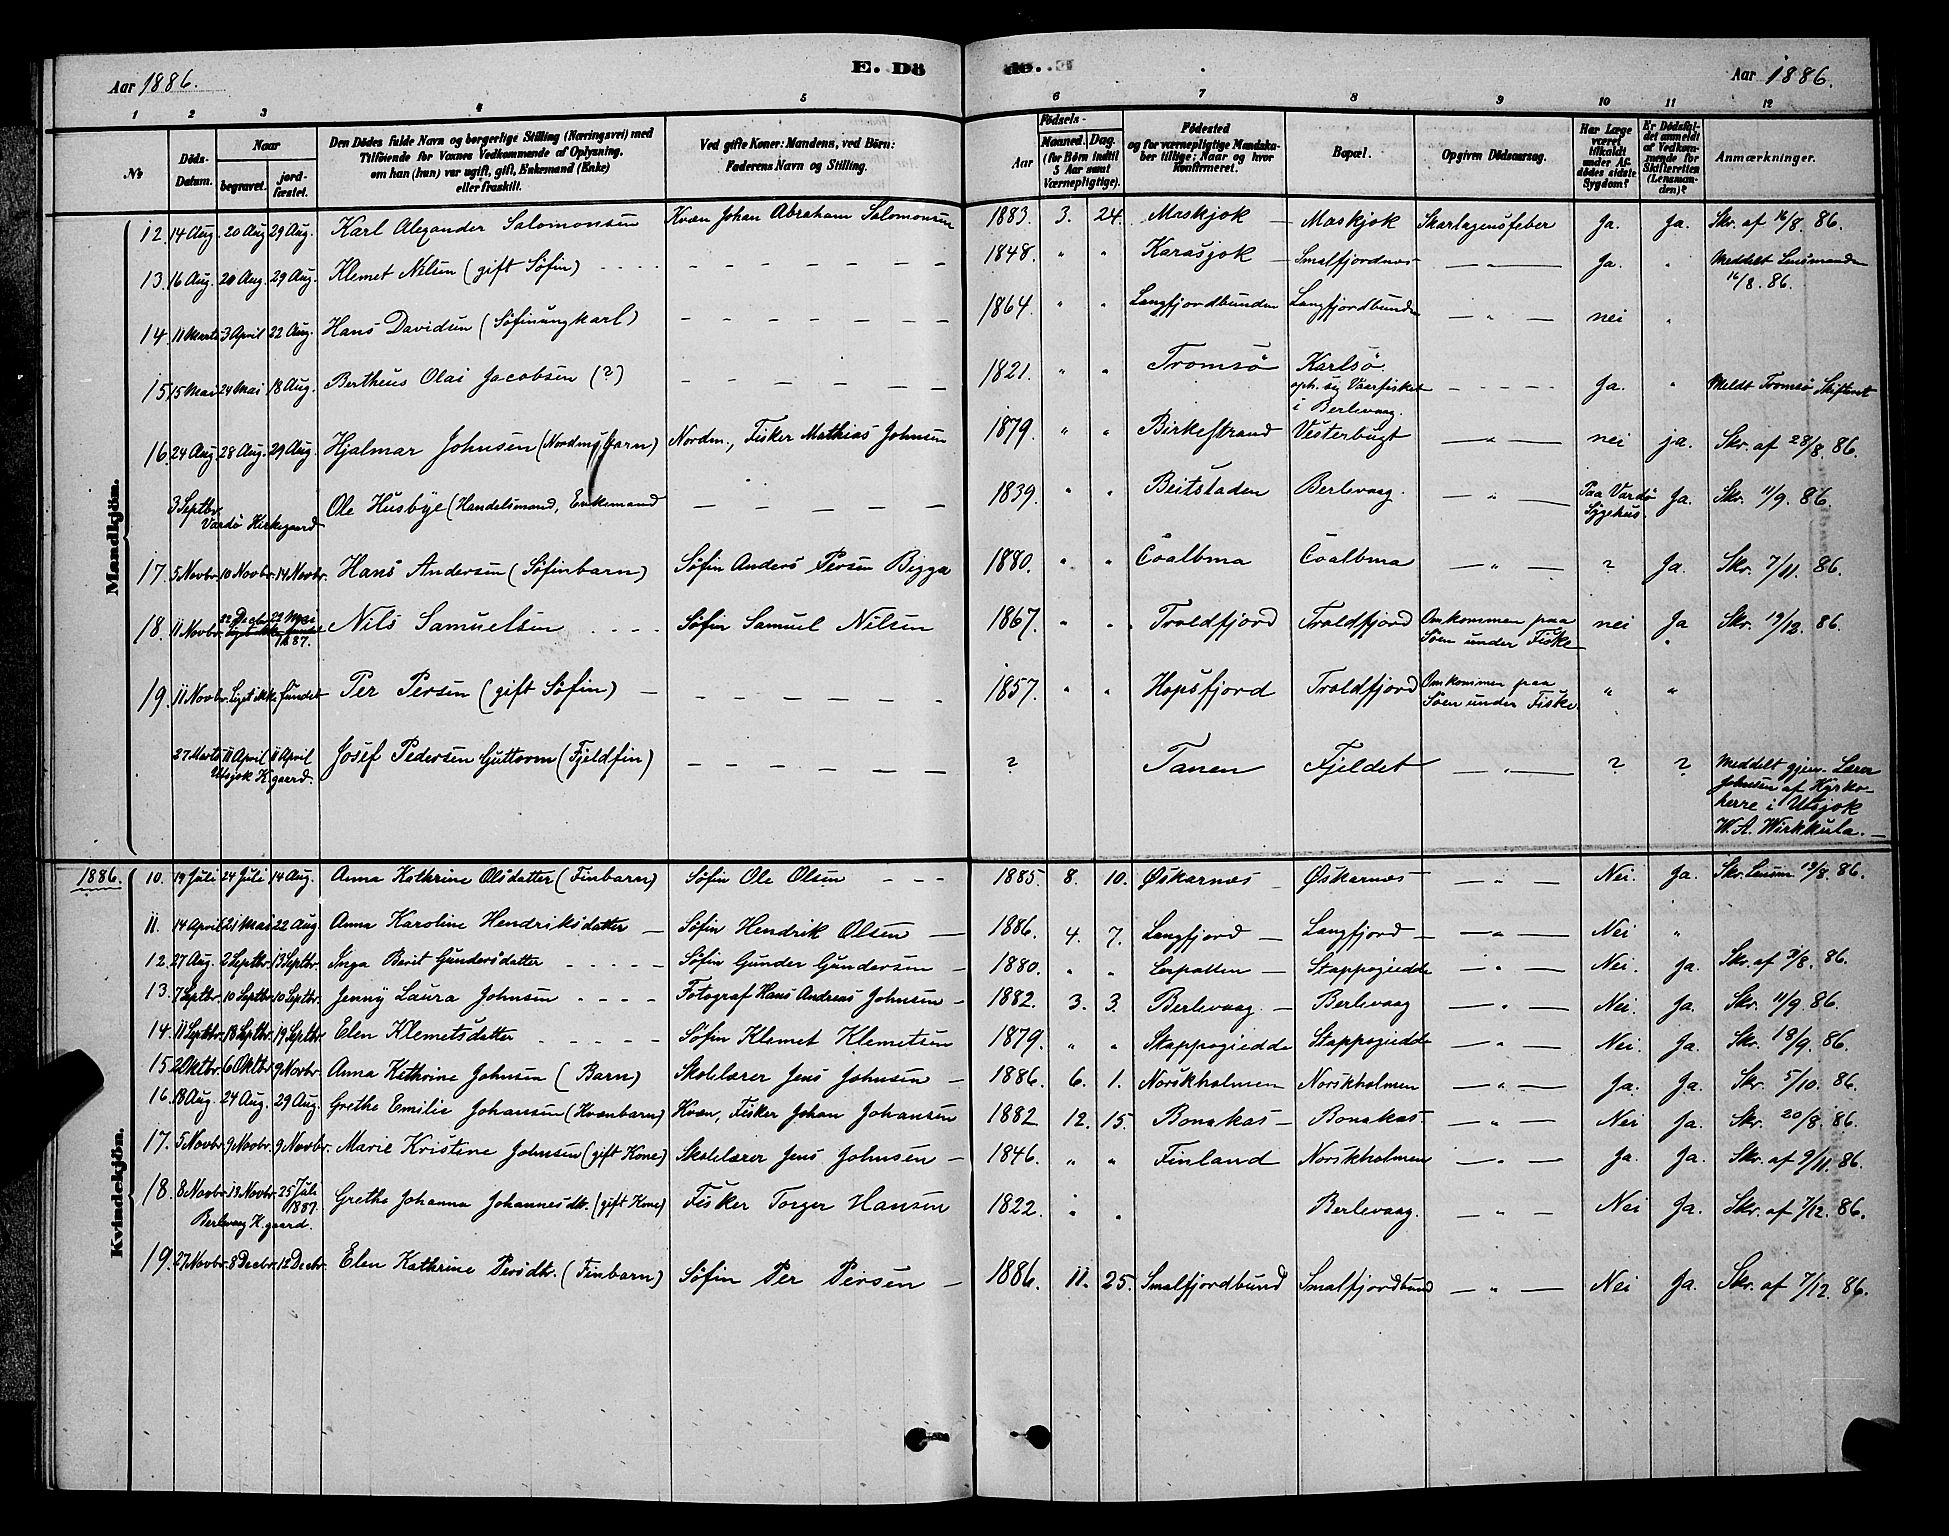 Aar 1886. E. Dö de. Aar 1886.
1 2 3 4 5 6 7 8 9 10 11 12
No Döds-Datum. Naar begravet. jord-fæstet. Den Dödes fulde Navn og borgerlige Stilling (Næringsvei) med Tilföiende for Voxnes Vedkommende af Oplysning, om han (hun) var ugift, gift, Enkemand (Enke) eller fraskilt. Ved gifte Koner: Mandens, ved Börn: Faderens Navn og Stilling. Födsels- Aar Maaned. Dag. (for Börn indtil 5 Aar samt Værnepligtige). Födested og for værnepligtige Mandskaber tillige: Naar og hvor konfirmeret. Bopæl. Opgiven Dödsaarsag. Har Læge været tilkaldt under Afdödes sidste Sygdom? Er Dödsfaldet anmeldt af Vedkommende for Skifteretten (Lensmanden)? Anmærkninger.
Mandkjön.
12. 14 Aug. 20 Aug 29 Aug. Karl Alexander Salomonsen Kvæn Johan Abraham Salomonsen 1883. 3. 24. Maskjok — Maskjok Skarlagensfeber Ja. Ja. Skr. af 16/8. 86.
13. 16 Aug. 20 Aug. 29 Aug. Klemet Nilsen (gift Søfin) - - - - 1848. " " Karasjok — Smalfjordnæs — " — Ja. " Meddelt Lensmanden 16/8. 86.
14. 11 Marts 3 April 22 Aug. Hans Davidsen (Søfinungkarl) 1864. " " Langfjordbunden Langfjordbunden — " — nei "
15. 15 Mai 24 Mai 18 Aug. Bertheus Olai Jacobsen (?) 1821. " " Tromsø Karlsø. oph. sig Vaarfisket i Berlevaag. - - - - Ja. " Meldt Tromsø Skifteret
16. 24 Aug. 28 Aug. 29 Aug. Hjalmar Johnsen (Nordmbarn) Nordm., Fisker Mathias Johnsen 1879. " " Birkestrand Vesterbugt — " — nei ja. Skr. af 28/8. 86.
3 Septbr. Vardø Kirkegaard Ole Husbye (Handelsmand, Enkemand 1839. " " Beitstaden Berlevaag. — " — Paa Vardø Sygehus. Ja. Skr. 11/9. 86.
17. 5 Novbr. 10 Novbr. 14 Novbr. Hans Andersen (Søfinbarn) Søfin Anders Persen Bigga 1880. " " Čoalbma Čoalbma — " — ? Ja. Skr. 7/11. 86.
18. 11 Novbr. 22 Decbr. 22 Mai 1887. Nils Samuelsen - - - - Søfin Samuel Nilsen 1867. " " Troldfjord Troldfjord Omkommen paa Søen under Fiske nei Ja Skr. 19/12. 86.
19. 11 Novbr. Liget ikke fundet Per Persen (gift Søfin) — 1857. " " Hopsfjord Troldfjord Omkommen paa Søen under Fiske. " "
27 Marts 11 April 11 April Utsjok K.gaard. Josef Pedersen Guttorm (Fjeldfin) ? Tanen Fjeldet — " — ? ? Meddelt gjen. Lærer Johnsen af Kyrkoherre i Utsjok W. A. Wirkkula. —
1886. Kvindekjön.
10. 19 Juli 24 Juli 14 Aug. Anna Kathrine Olsdatter (Finbarn) Søfin Ole Olsen - - - 1885. 8. 10. Øskarnæs — Øskarnæs — — " — Nei. Ja. Skr. Lensm 19/8. 86.
11. 14 April 21 Mai 22 Aug. Anna Karoline Hendriksdatter — Søfin Hendrik Olsen — 1886. 4. 7. Langfjord — Langfjord — — " — Nei "
12. 27 Aug. 2 Septbr. 13 Septbr. Inga Berit Gundersdatter - - - - Søfin Gunder Gundersen — 1880. " " Lerpollen — Stappogiedde — " — Nei. Ja. Skr. af 31/8. 86.
13. 7 Septbr. 10 Septbr. 10 Septbr. Jenny Laura Johnsen - - - - Fotograf Hans Andreas Johnsen — 1882. 3. 3. Berlevaag. — Berlevaag — " — Nei. Ja. Skr. 11/9. 86.
14. 11 Septbr. 18 Septbr. 19 Septbr. Elen Klemetsdatter - - - - - Søfin Klemet Klemetsen 1879. " " Stappogiedde Stappogiedde — " — Nei. Ja. Skr. 18/9. 86.
15. 2 Oktbr. 6 Oktbr. 9 Novbr. Anna Kathrine Johnsen (Barn) Skolelærer Jens Johnsen — 1886. 6. 1. Norskholmen Norskholmen — " — Ja. Ja. Skr. 5/10. 86.
16. 18 Aug. 24 Aug. 29 Aug. Grethe Emilie Johansen (Kvænbarn) Kvæn, Fisker Johan Johansen 1882 12. 15. Bonakas — Bonakas. — " — Nei Ja. Skr. 20/8. 86.
17. 5 Novbr. 9 Novbr. 9 Novbr. Marie Kristine Johnsen (gift Kone) Skolelærer Jens Johnsen — 1846. " " Finland Norskholmen — " — Ja. Ja. Skr. af 9/11. 86.
18. 8 Novbr. 13 Novbr. 25 Juli 1887. Berlevaag K.gaard. Grethe Johanna Johannesdtr. (gift Kone) Fisker Torger Hansen 1822. " " Berlevaag. — " — Nei Ja. Skr. af 7/12. 86.
19. 27 Novbr. 8 Decbr. 12 Decbr. Elen Kathrine Persdtr. (Finbarn) Søfin Per Persen — 1886. 11. 25. Smalfjordbund Smalfjordbund — " — Nei Ja. Skr. af 7/12. 86.